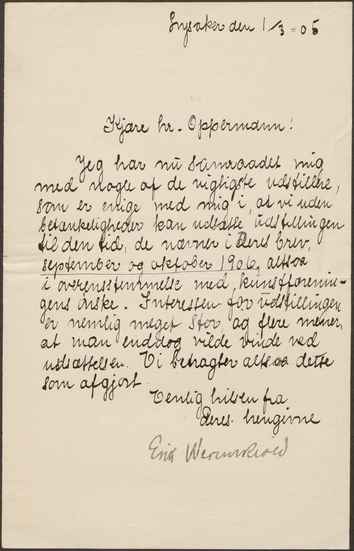 Lysaker den 1/3-05
Kjære hr. Oppermann!
Jeg har nu samraadet mig
med nogle af de vigtigste udstillere,
som er enige med mig i, at vi uden
betænkeligheder kan udsætte udstillingen
til den tid, de nævner i Deres brev,
september og oktober 1906, altsaa
i overensstemmelse med kunstforenin-
gens ønske. Interessen for udstillingen
er nemlig meget stor og flere mener,
at man enddog vilde vinde ved
udsættelsen. Vi betragter altsaa dette
som afgjort.
Venlig hilsen fra
Deres hengivne
Erik Werenskiold